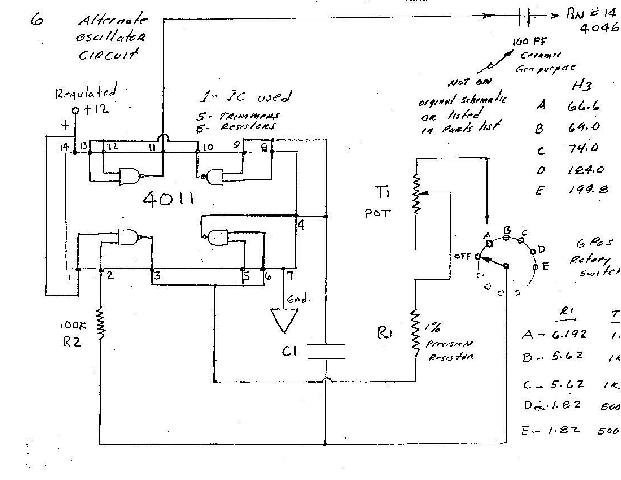 6 Alternate
Oscillator
Circuit
Pin # 14
4046
100 PF
Ceramic
Gen purpose
NOT ON
original schematic
OR listed
in Parts list
Regulated
+12
+
1- IC used
5- Trimmers
5- Resistors
Hz
A 66.6
B 69.0
C 74.0
D 124.0
E 199.8
14 13 12 11 10 9 8
4011
4
1 2 3 5 6 7
T1
POT
A B C D E
OFF
6 Pos
Rotary
Switch
Gnd.
100K
R2
C1
R1
1%
Precision
Resistor
R1
A - 6.192
B - 5.62
C - 5.62
D - 1.82 500
E - 1.82 500